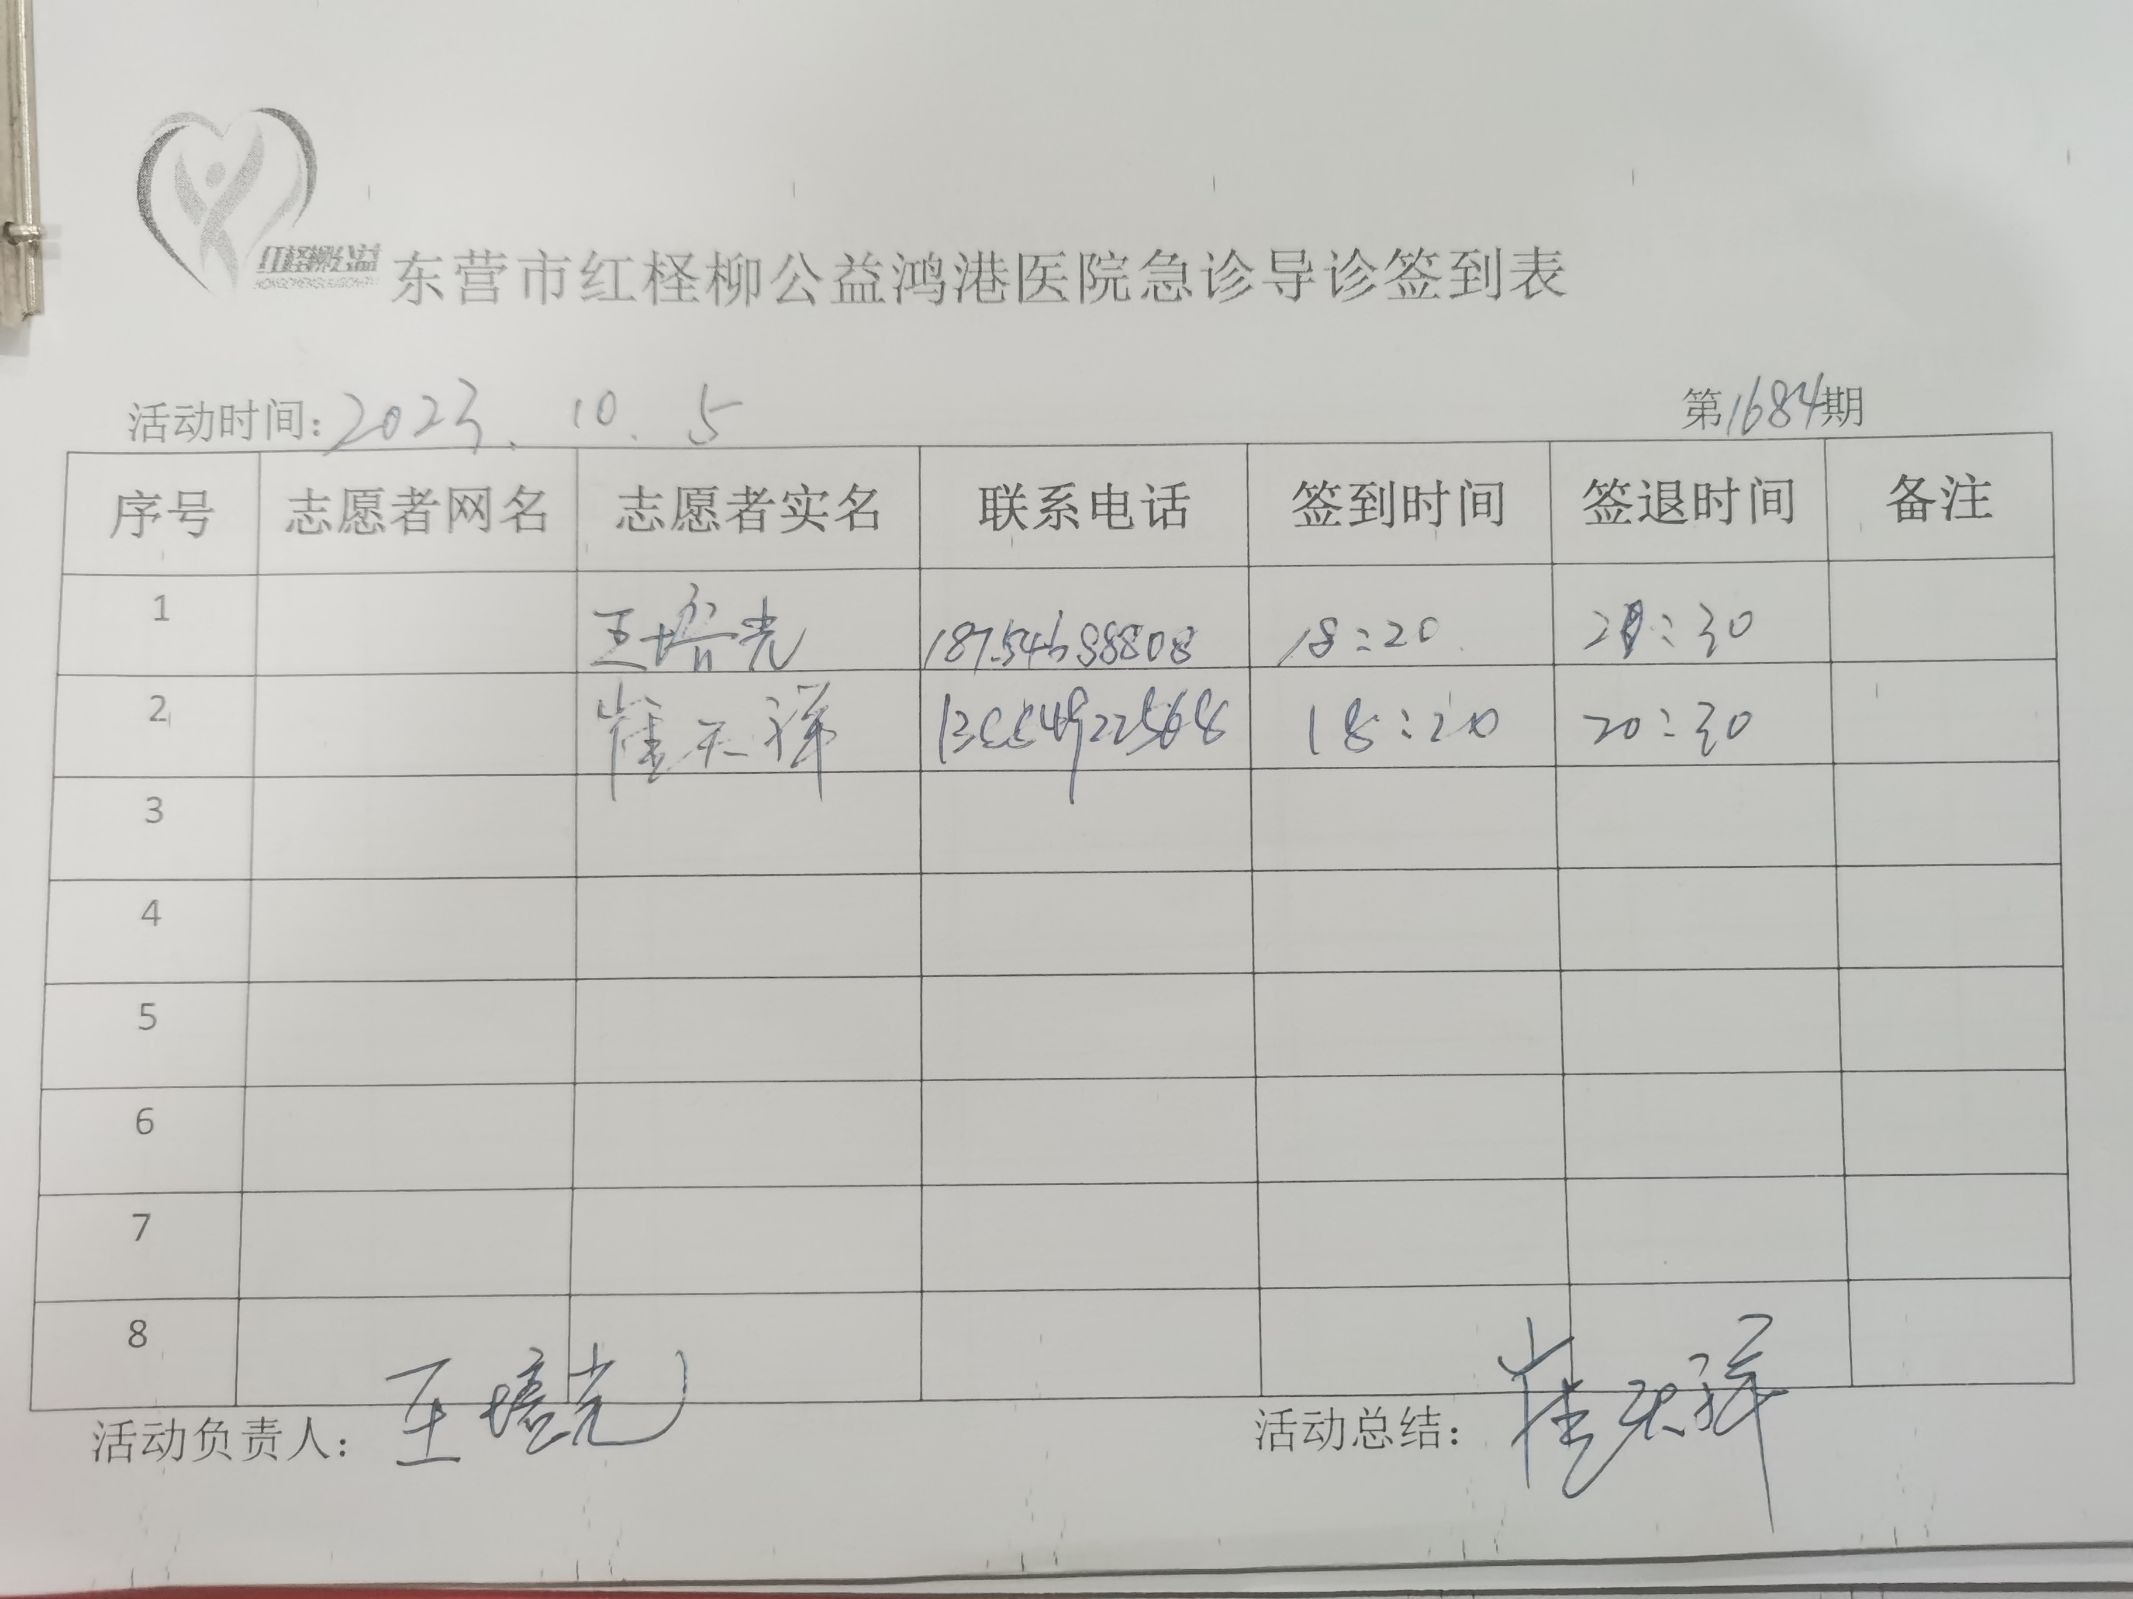 红柽柳公益
东营市红柽柳公益鸿港医院急诊导诊签到表
活动时间: 2023. 10. 5 第1684期
序号 志愿者网名 志愿者实名 联系电话 签到时间 签退时间 备注
1 王培光 18:20 :30
2 崔天祥 18:20 20:30
3
4
5
6
7
8
活动负责人: 王培光 活动总结: 崔天祥